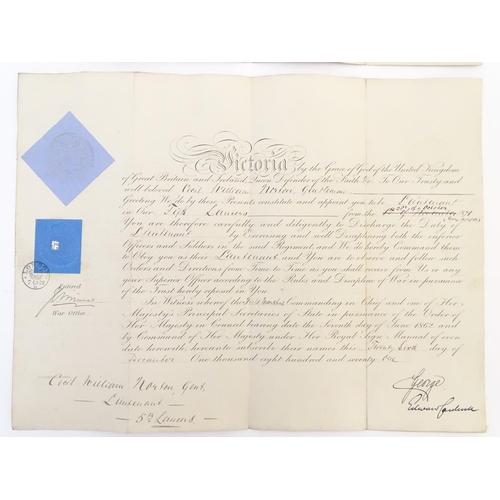 Victoria by the Grace of God of the United Kingdom
of Great Britain and Ireland, Queen, Defender of the Faith &c. To Our Trusty and
well beloved Cecil William Norton Gentleman
Greeting We do by these Presents constitute and appoint you to be Lieutenant
in Our Lancers from the
You are therefore carefully and diligently to Discharge the Duty of
Lieutenant by Exercising and well Disciplining both the inferior
Officers and Soldiers in the said Regiment and We do hereby Command them
to Obey you as their Lieutenant and You are to observe and follow such
Orders and Directions from Time to Time as you shall receive from Us or any
your Superior Officer according to the Rules and Discipline of War in pursuance
of the Trust hereby reposed in You.
In Witness whereof the Commanding in Chief and one of Her
Majesty's Principal Secretaries of State in pursuance of the Order of
Her Majesty in Council bearing date the Seventh day of June 1862 and
by Command of Her Majesty under Her Royal Sign Manual of even
date herewith hereunto subscribe their names this day of
December One thousand eight hundred and seventy One
George
Edward Cardwell
War Office
Cecil William Norton, Gent.
Lieutenant
5th Lancers